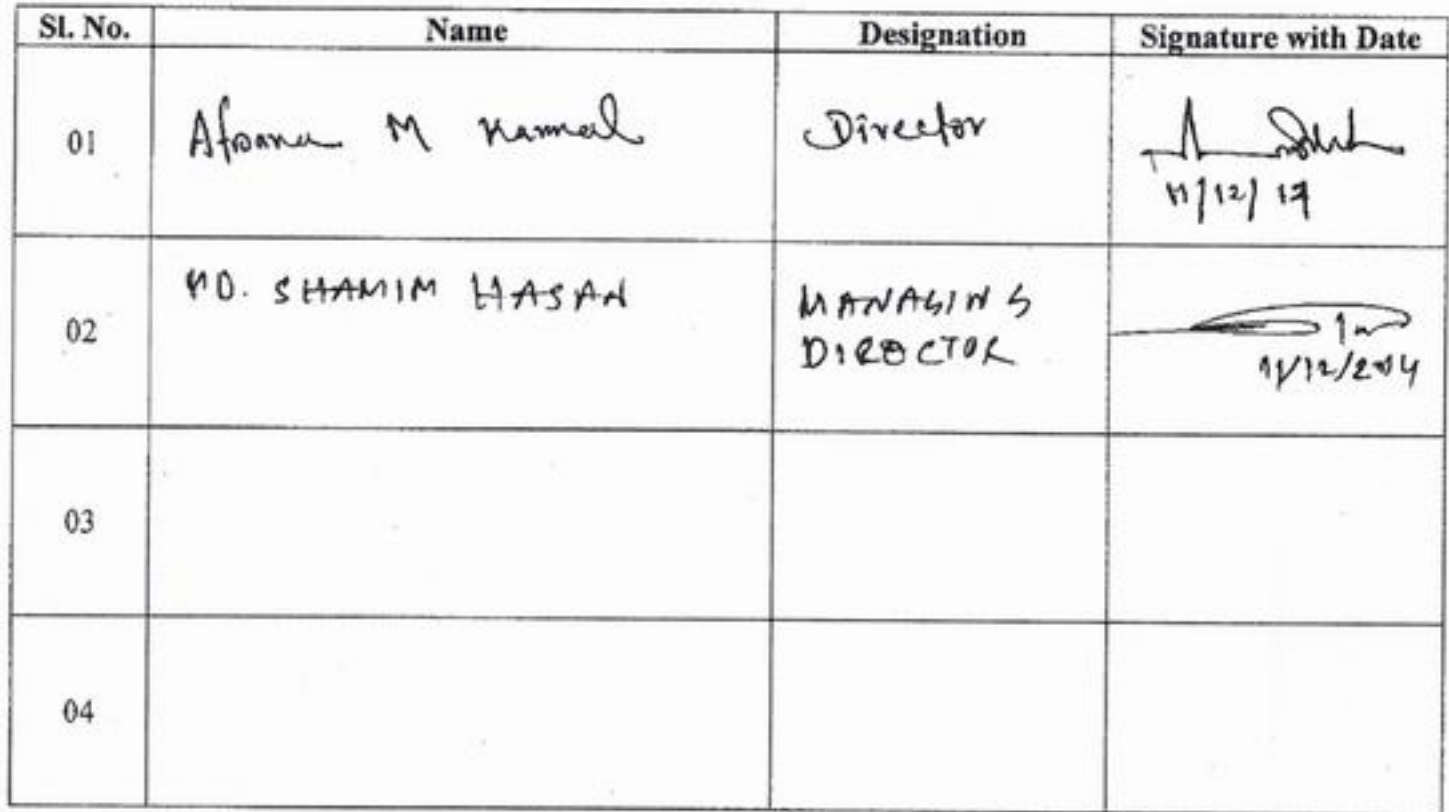 Sl. No. Name Designation Signature with Date
01 Afsana M Kamal Director
11/12/17
02 MD. SHAMIM HASAN MANAGING
DIRECTOR
11/12/2014
03
04